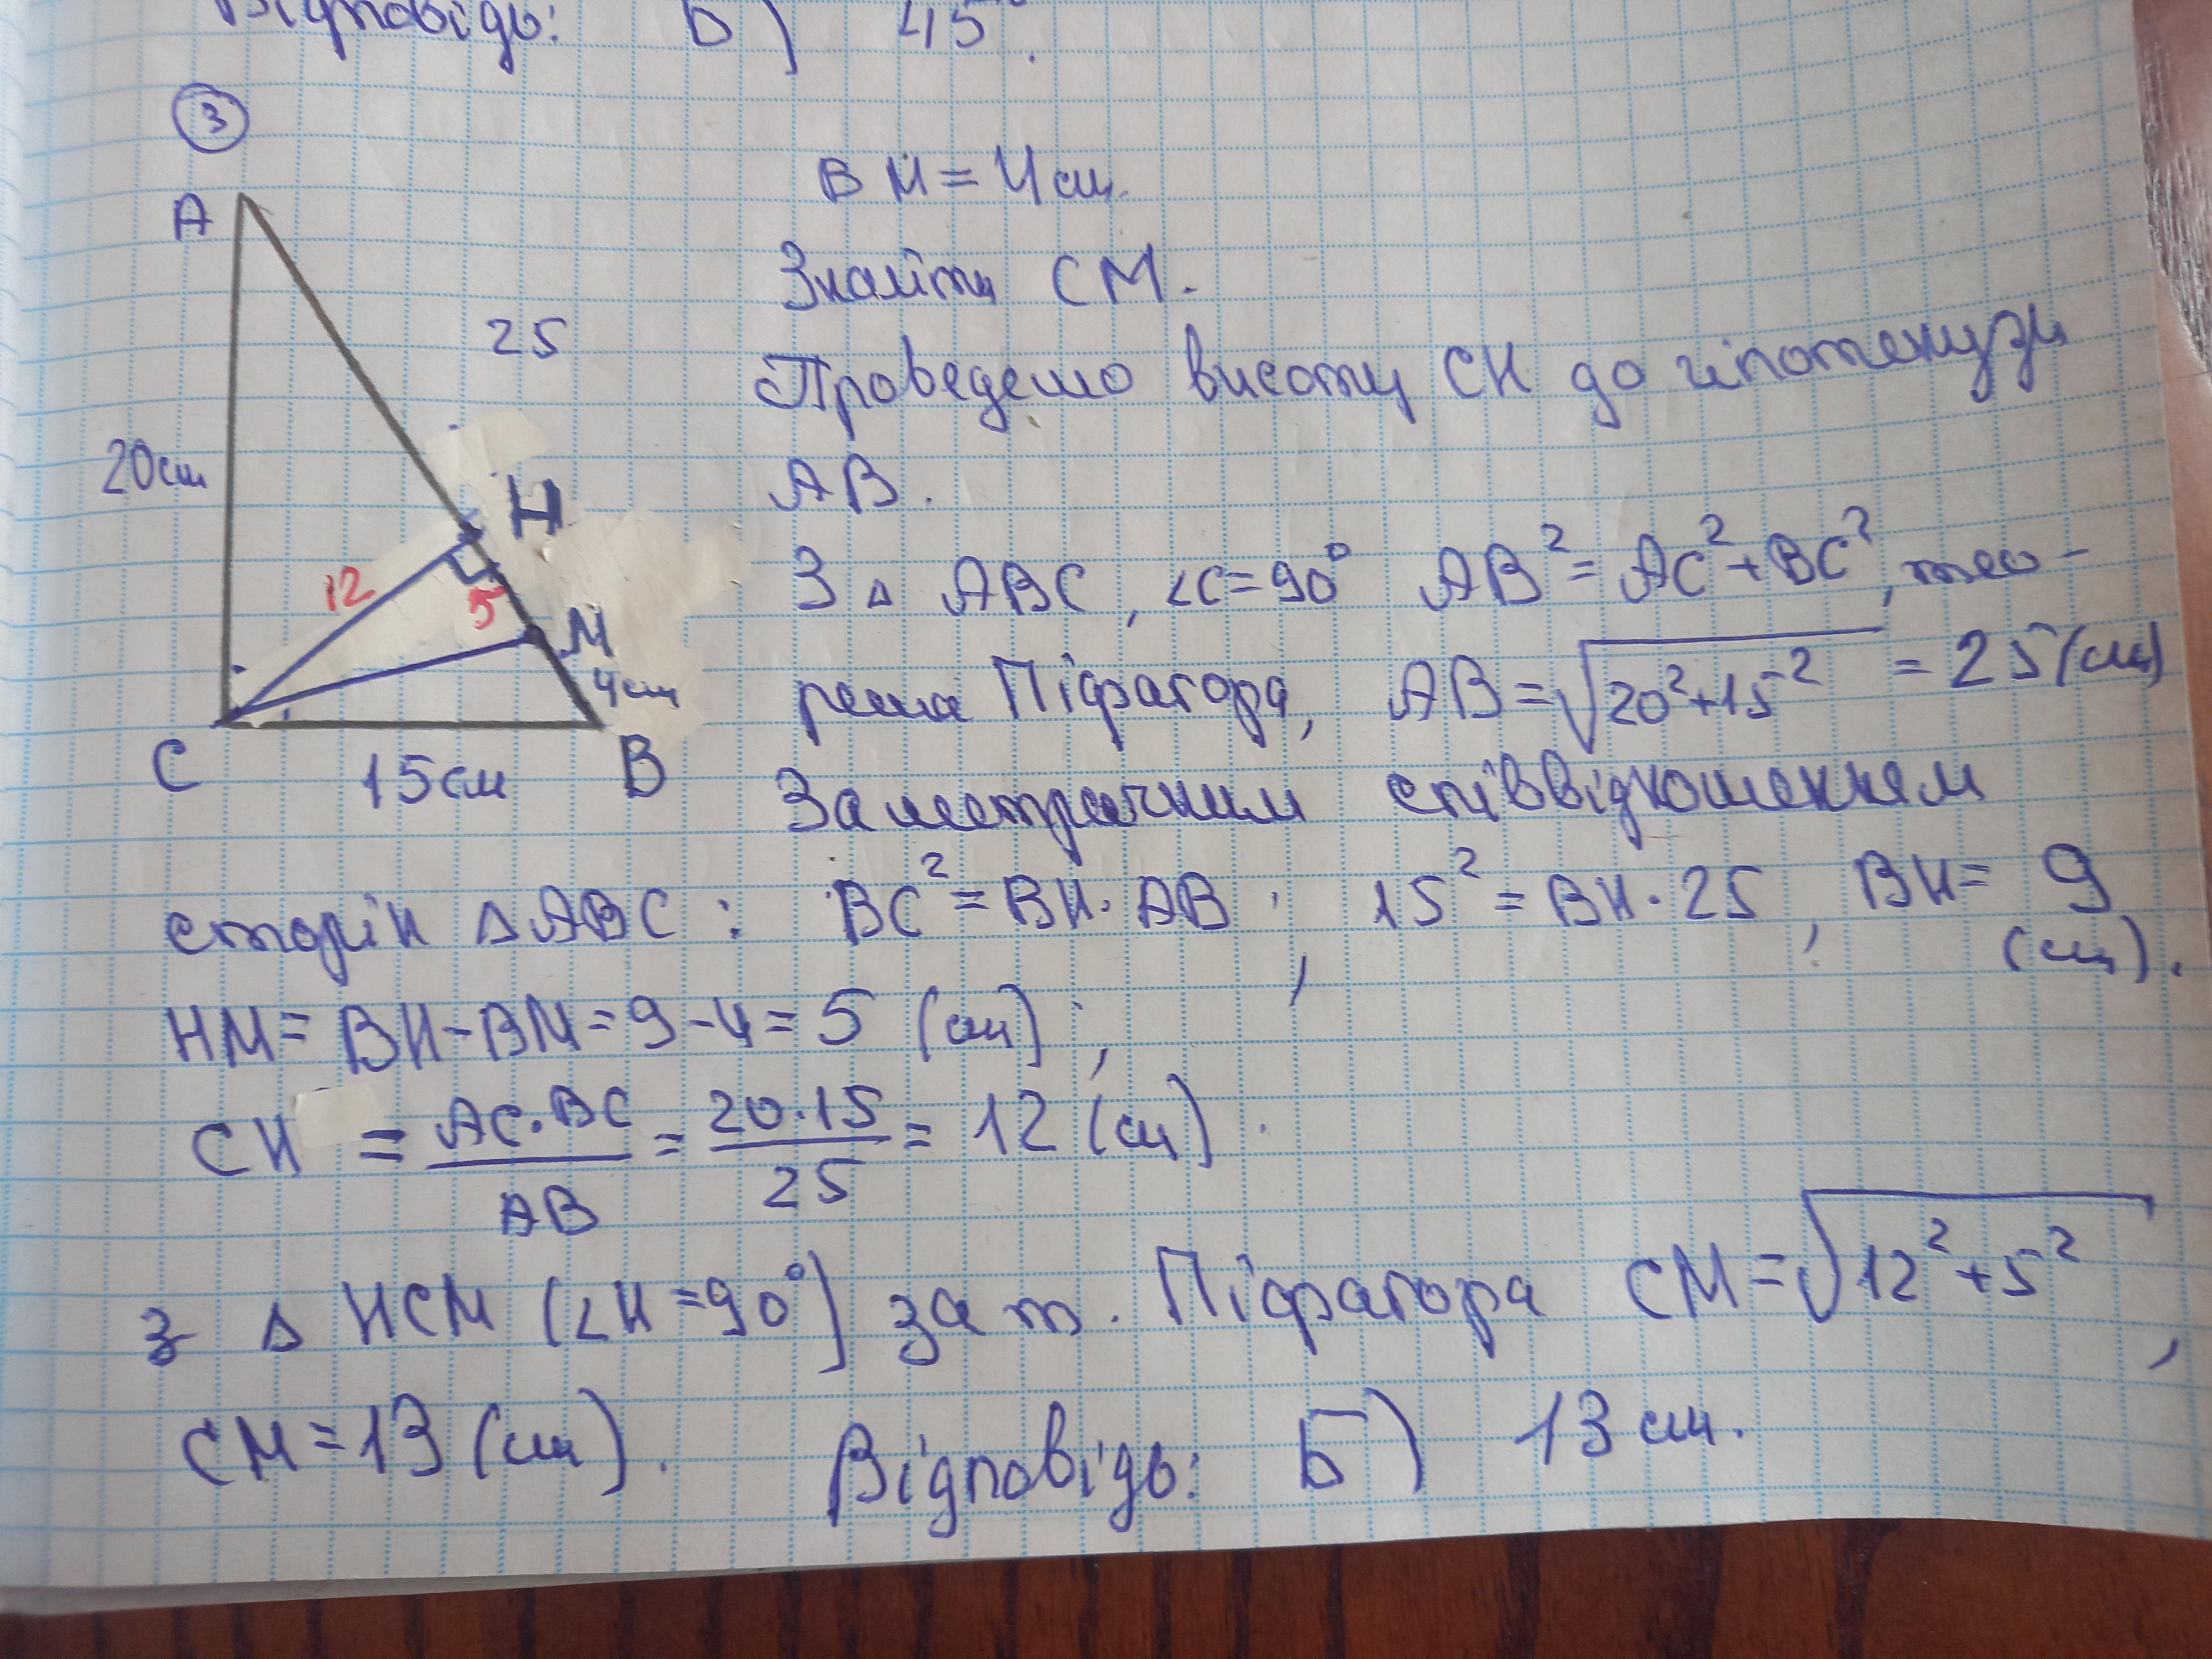 Відповідь: Б) 45°.
3
A
BM = 4 см.
Знайти CM.
25
Проведемо висоту CH до гіпотенузи
20 см
AB.
H
12
5
З △ ABC, ∠C = 90° AB² = AC² + BC², тео-
M
4 см
рема Піфагора, AB = √20² + 15² = 25 (см)
C
15 см
B
За метричним співвідношенням
сторін △ ABC : BC² = BH · AB ; 15² = BH · 25, BH = 9
(см).
HM = BH - BM = 9 - 4 = 5 (см);
CH = AC · BC / AB = 20 · 15 / 25 = 12 (см).
З △ HCM (∠H = 90°) за т. Піфагора CM = √12² + 5²,
CM = 13 (см). Відповідь: Б) 13 см.